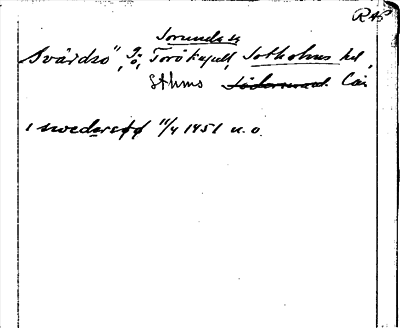 R 45
Sorunda sn
Svärdsö", ö, Torö kapell, Sotholms hd,
Sthms Södermanl. Län
i swedersöö 11/4 1451 u.o.